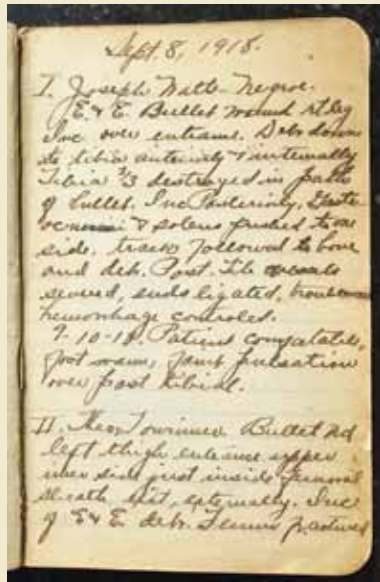 Sept. 8, 1918.
I. Joseph Watts - Negroe.
E. & E. Bullet wound rt leg
Inc over entrance. Deb. down
to tibia anteriorly & internally
Tibia 1/3 destroyed in path
of bullet. Inc Posteriorly,
& soleus pushed to one
side. track followed to bone
and deb. Post. Tib
severed, ends ligated, troublesome
hemorrhage controled.
9-10-18. Patient comfortable,
foot warm, faint pulsation
over post tibial.
II. Bullet wd
left thigh entrance upper
inner side just inside femoral
sheath, externally. Inc
of E & E. deb. Femur fractured